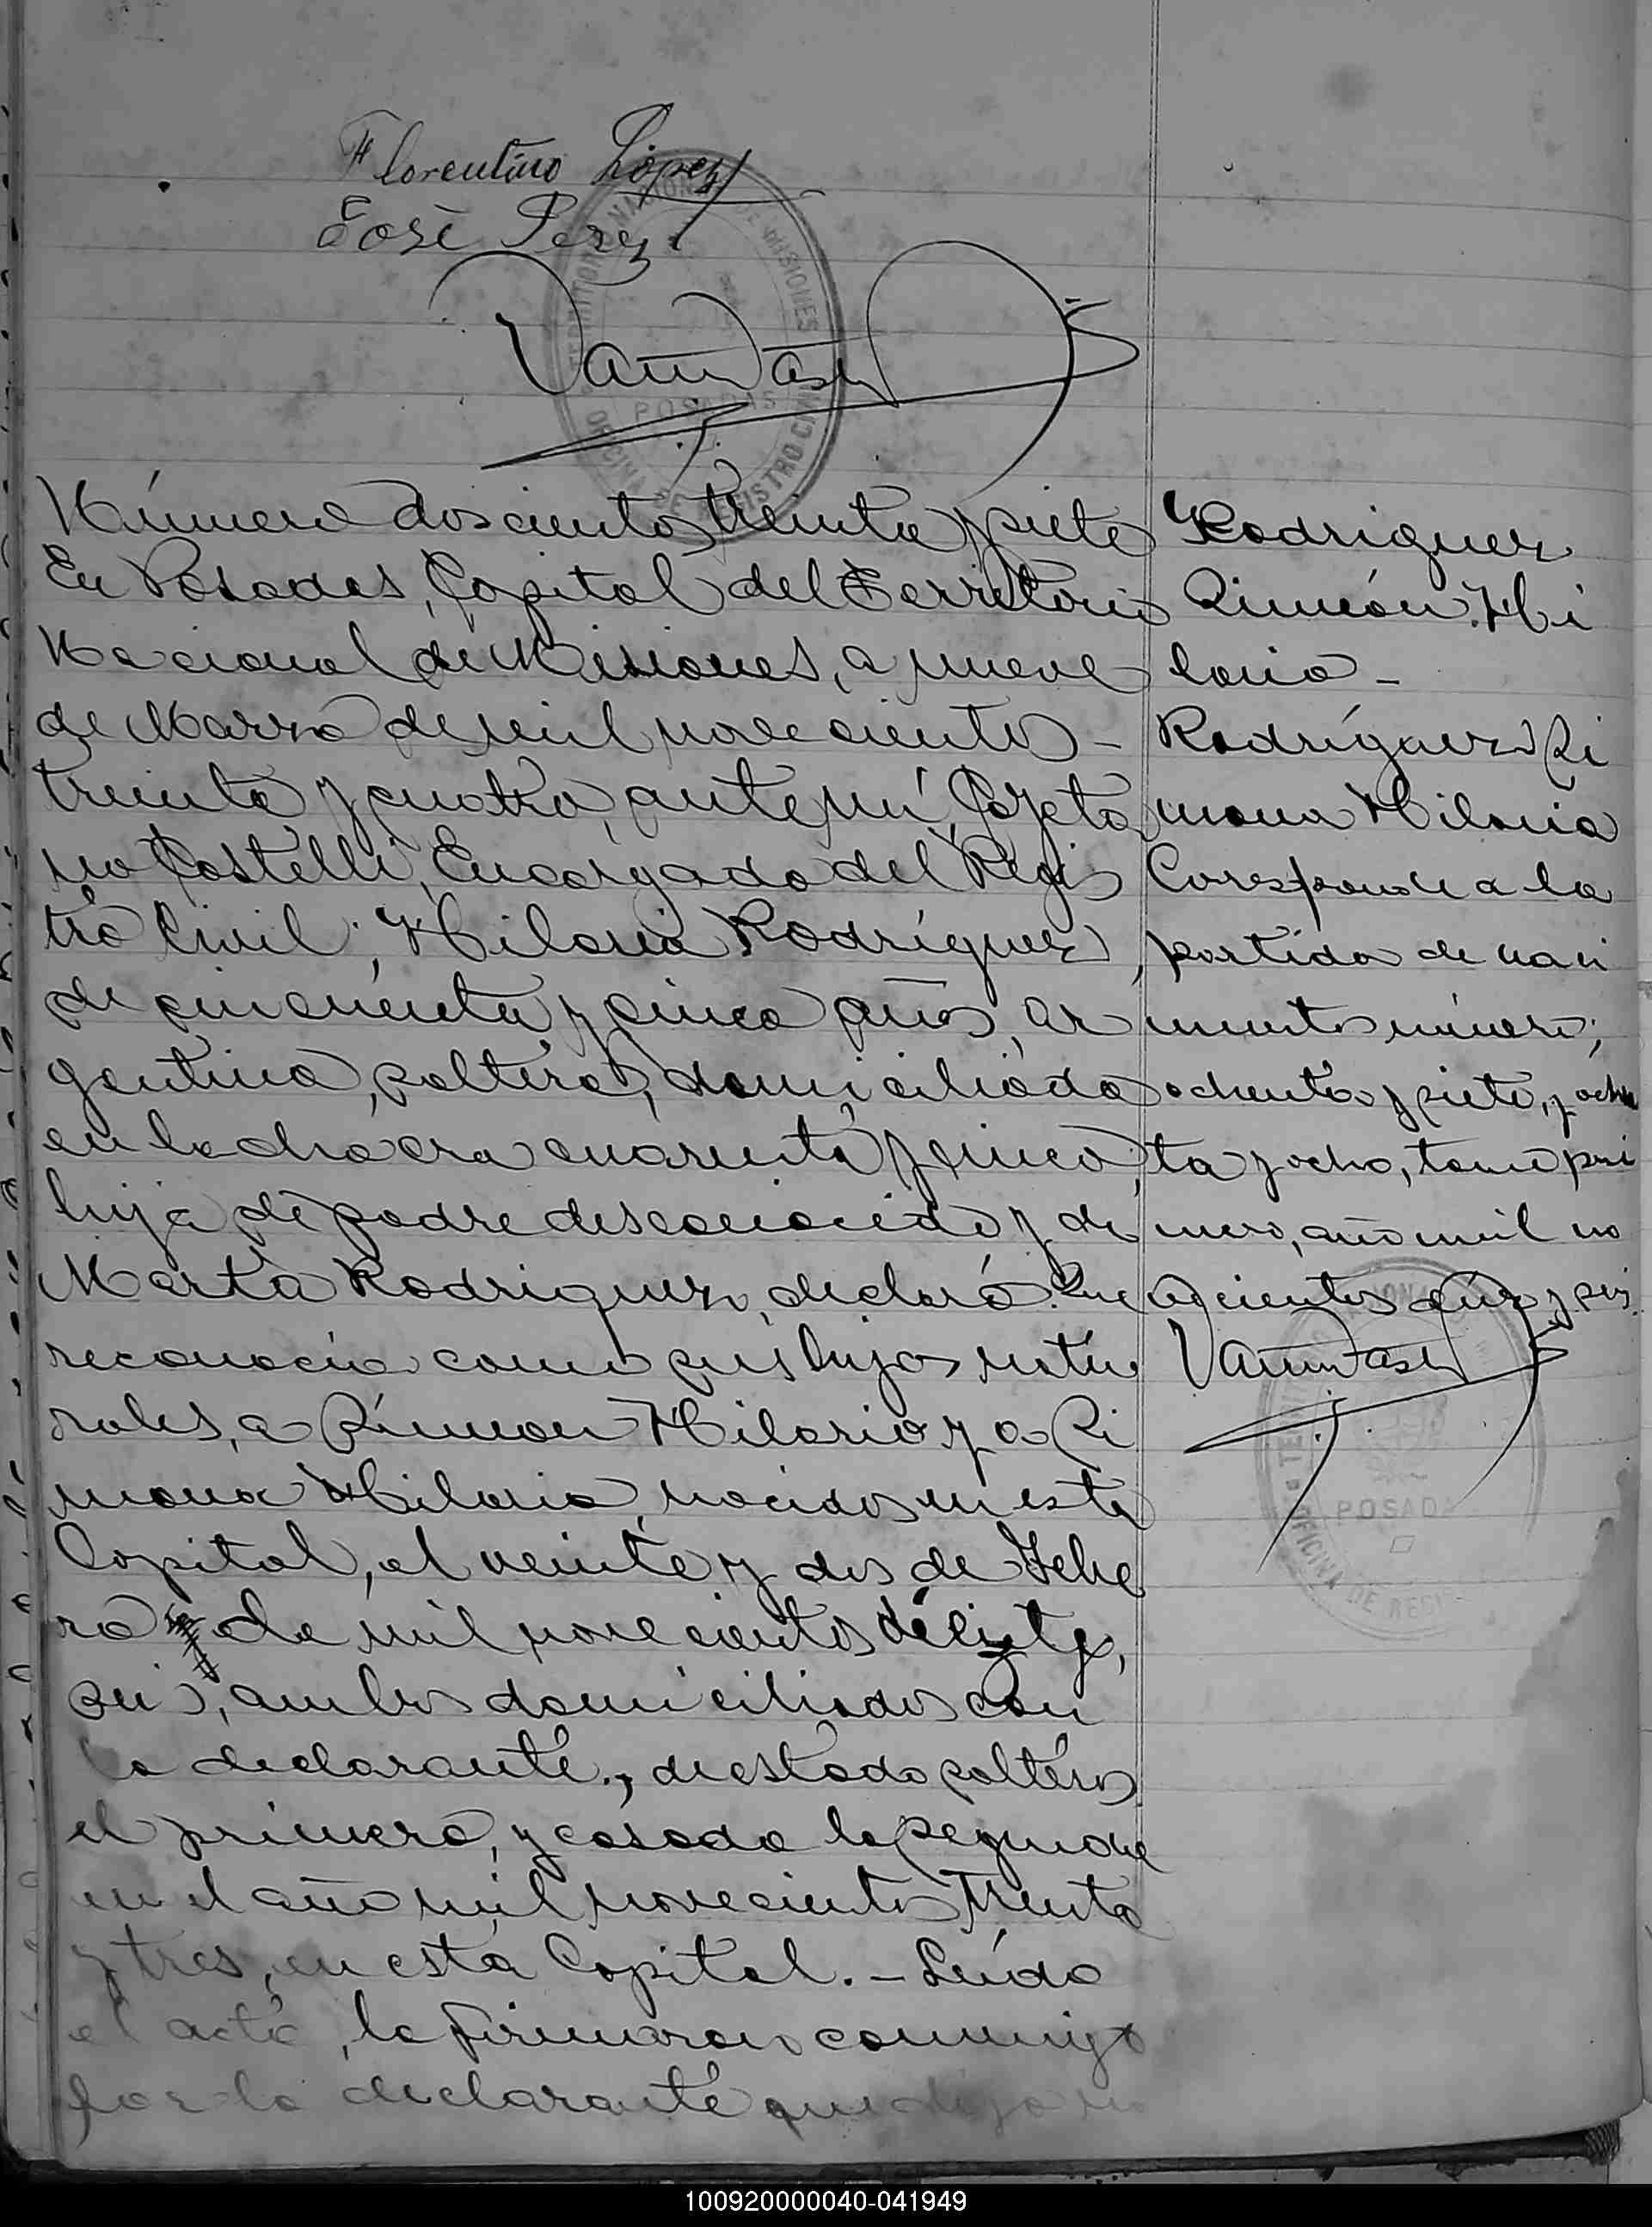 Florentino López
José Perez
TERRITORIO NACIONAL DE MISIONES
POSADAS
OFICINA DE REGISTRO CIVIL
Número doscientos treinta y siete
En Posadas, Capital del Territorio
Nacional de Misiones, a nueve
de Marzo de mil novecientos -
treinta y cuatro, ante mí, Cayeta
no Castelli, Encargado del Regis
tro Civil; Hilaria Rodríguez,
de cincuenta y cinco años, ar
gentina, soltera, domiciliada
en la chacra cuarenta y cinco,
hija de padre desconocido y de
Marta Rodriguez, declaró: Que
reconocía como sus hijos natu
rales, a Simeon Hilario y a Si
mona Hilaria, nacidos en esta
Capital, el veinte y dos de Febre
ro de mil novecientos
seis, ambos domiciliados con
la declarante., de estado soltero
el primero, y casada la segunda
en el año mil novecientos treinta
y tres, en esta Capital. - Leída
el acta, la firmaron conmigo
por la declarante que dijo no
Rodriguez
Simeón Hi
lario -
Rodríguez Si
mona Hilaria
Corresponde a la
partida de naci
miento número;
ochenta y siete, y ochen
ta y ocho, tomo pri
mero, año mil no
vecientos diez y seis.
POSADA
OFICINA DE REGI
100920000040-041949